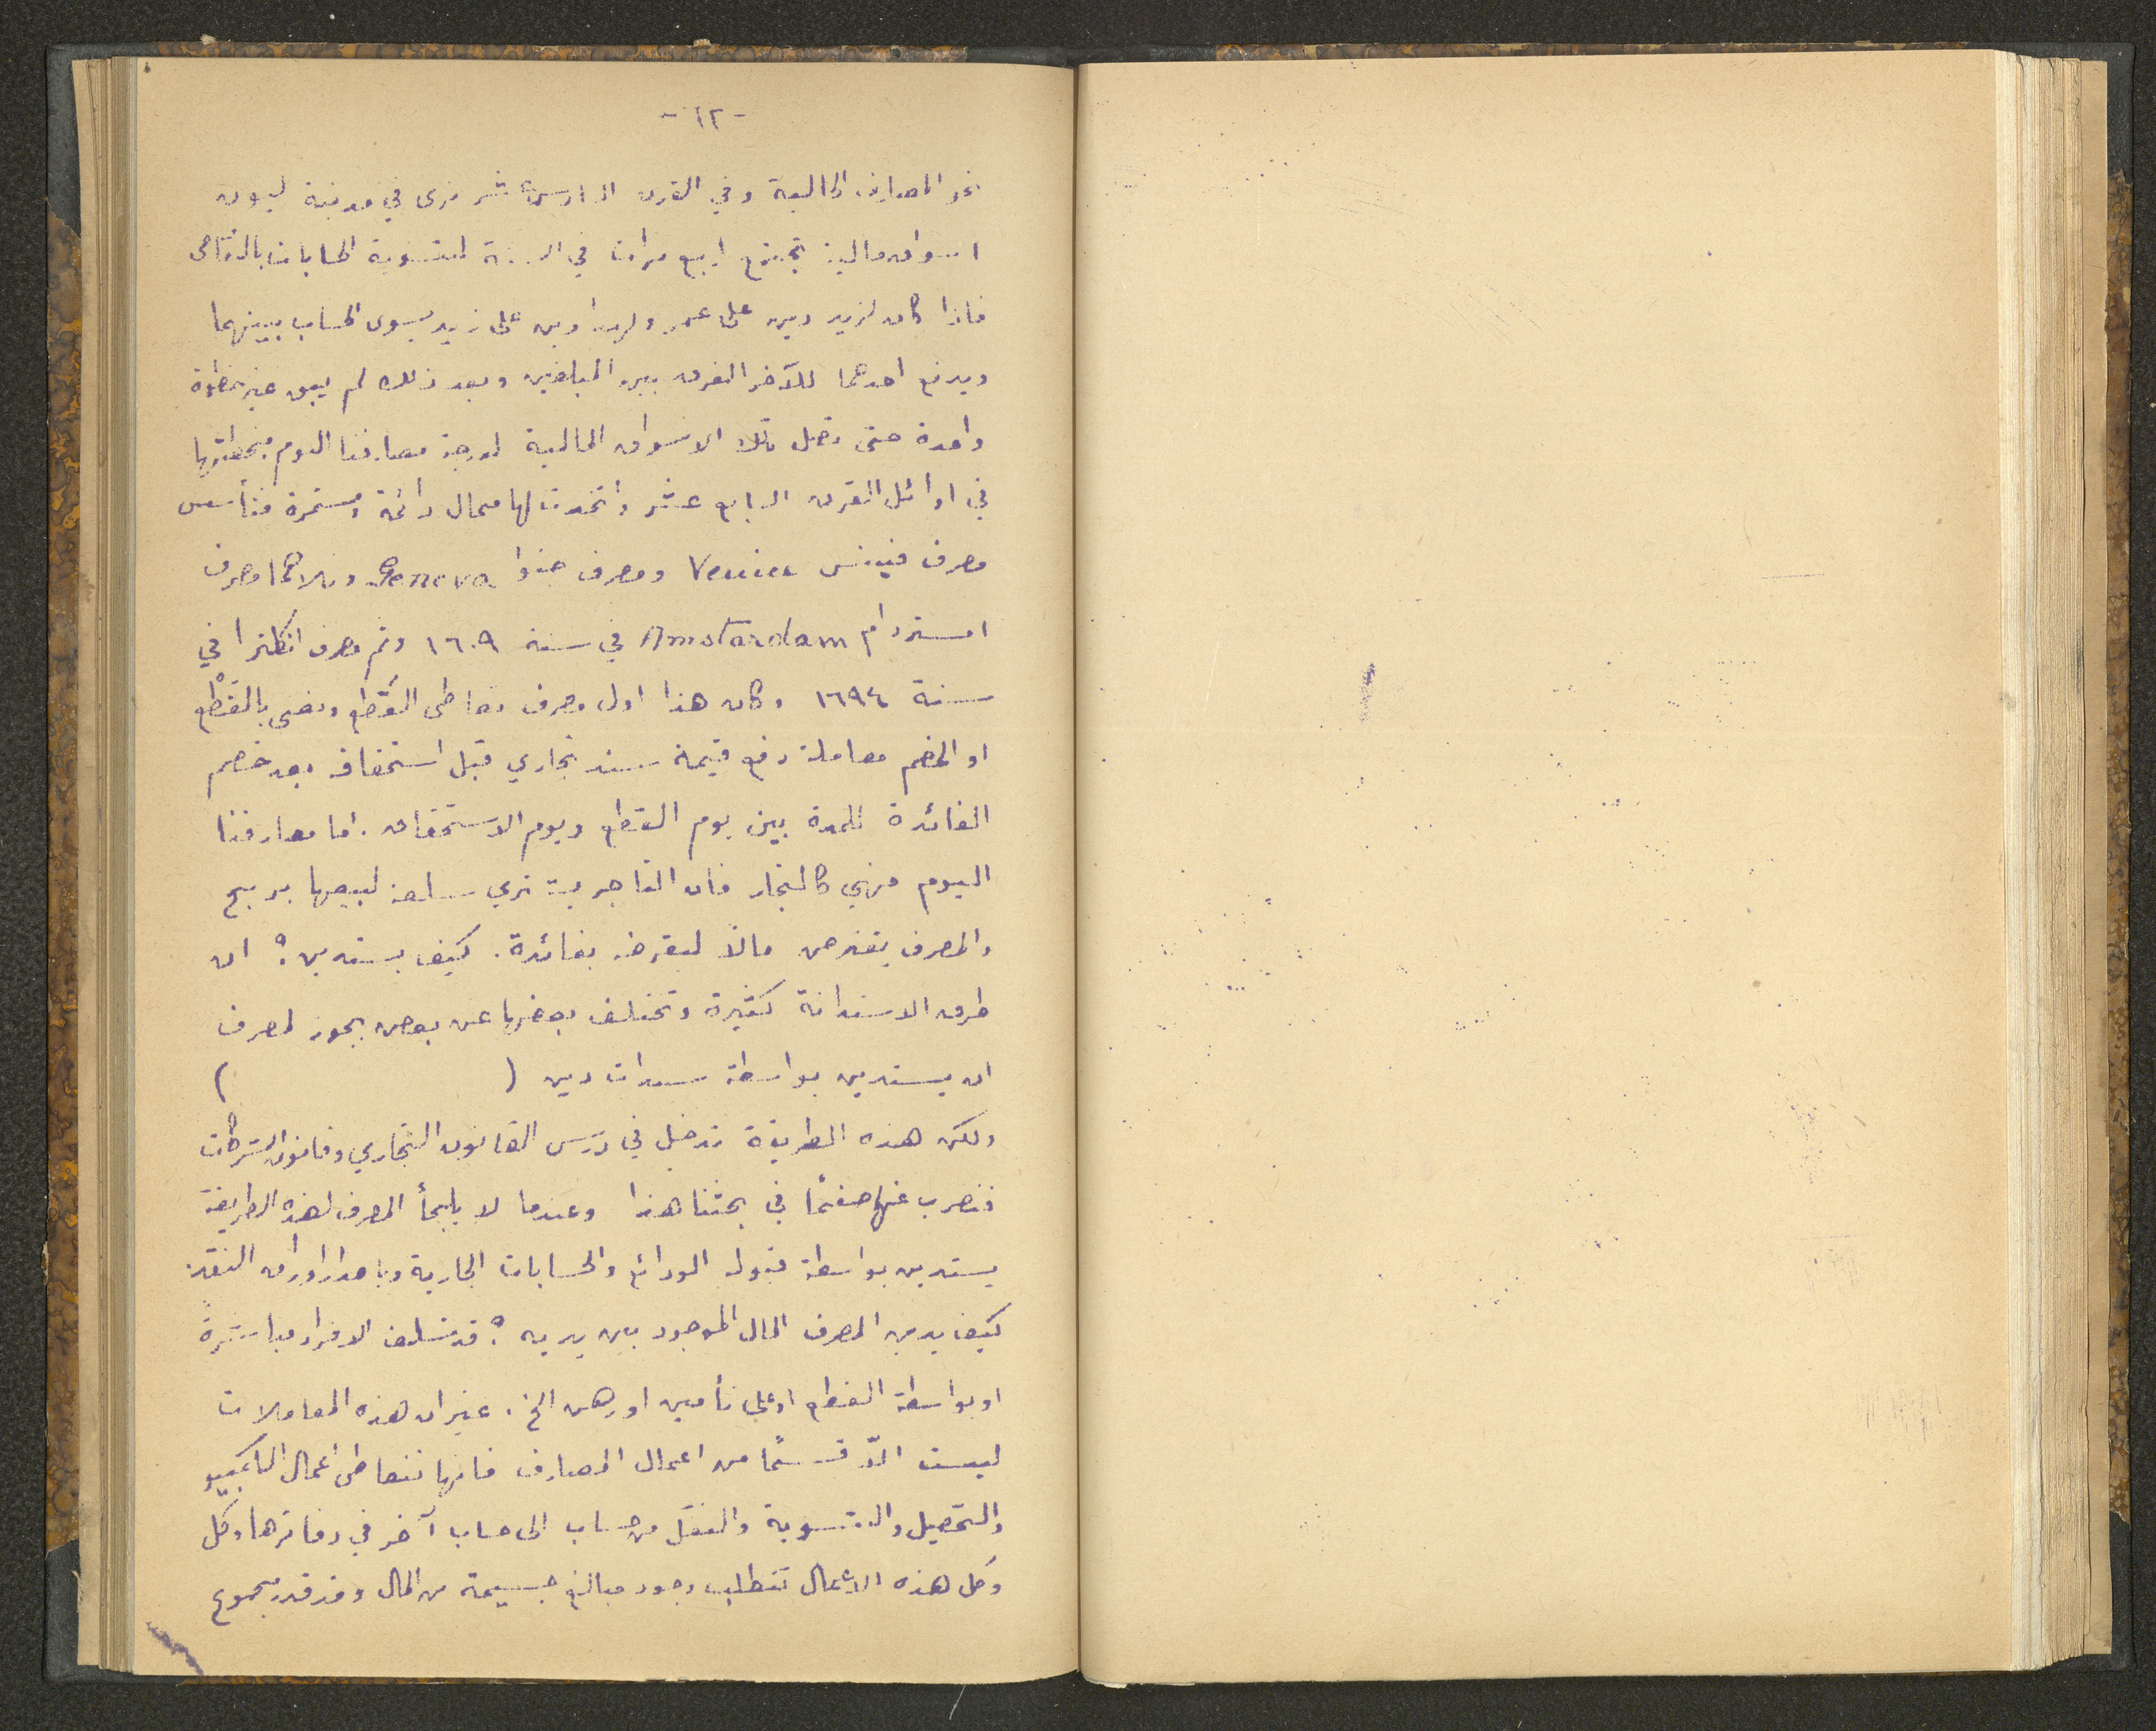 - ١٢ -
نحو المصارف الحالية وفي القرن السادس عشر نرى في مدينة ليون
اسواق مالية تجتمع اربع مرات في السنة لتسوية الحسابات بالتقاص
فاذا كان لزيد دين على عمر ولهذا دين على زيد يسوى الحساب بينهما
ويدفع احدهما للآخر الفرق بين المبلغين وبعد ذلك لم يبق غير خطوة
واحدة حتى تصل تلك الاسواق المالية لدرجة مصارفنا اليوم فخطتها
في اوائل القرن السابع عشر واتخذت لها محال دائمة ومستمرة فتأسس
مصرف فينس Venice ومصرف جنوا Geneva وتلاهما مصرف
امستردام Amstardam في سنة ١٦٠٩ وثم مصرف انكلترا في
سنة ١٦٩٤ وكان هذا اول مصرف تعاطى القَطع ونعني بالقَطْع
او الخصم معاملة دفع قيمة سند تجاري قبل استحقاقه بعد خصم
الفائدة للمدة بين يوم القطع ويوم الاستحقاق. اما مصارفنا
اليوم فهي كالتجار فان التاجر يشتري سلعة ليبيعها بربح
والمصرف يقترض مالاً ليقرضه بفائدة. كيف يستدين؟ ان
طرق الاستدانة كثيرة وتختلف بعضها عن بعض يجوز لمصرف
ان يستدين بواسطة سندات دين ( )
ولكن هذه الطريقة تدخل في درس القانون التجاري وقانون الشركات
فنضرب عنها صفحًا في بحثنا هذا وعندما لا يلجأ المصرف لهذه الطريقة
يستدين بواسطة قبوله الودائع والحسابات الجارية وباصدار اوراق النقد.
كيف يدين المصرف المال الموجود بين يديه؟ قد يسلف الافراد مباشرةً
او بواسطة القطع او على تأمين او رهن الخ. غير ان هذه المعاملات
ليست الاّ قسمًا من اعمال المصارف فانها تتعاطى اعمال الكامبيو
والتحصيل والتسوية والنقل من حساب الى حساب آخر في دفاترها وكل
وكل هذه الاعمال تتطلب وجود مبالغ جسيمة من المال وقد قدر مجموع